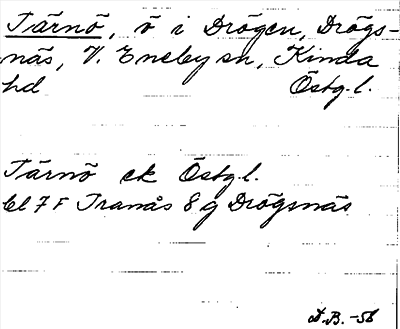 Tärnö, ö i Drögen, Drögs-
näs, V. Eneby sn, Kinda
hd Östg. l.
Tärnö ek Östg l.
bl 7 F Tranås 8 g Drögsnäs
D.B. -56